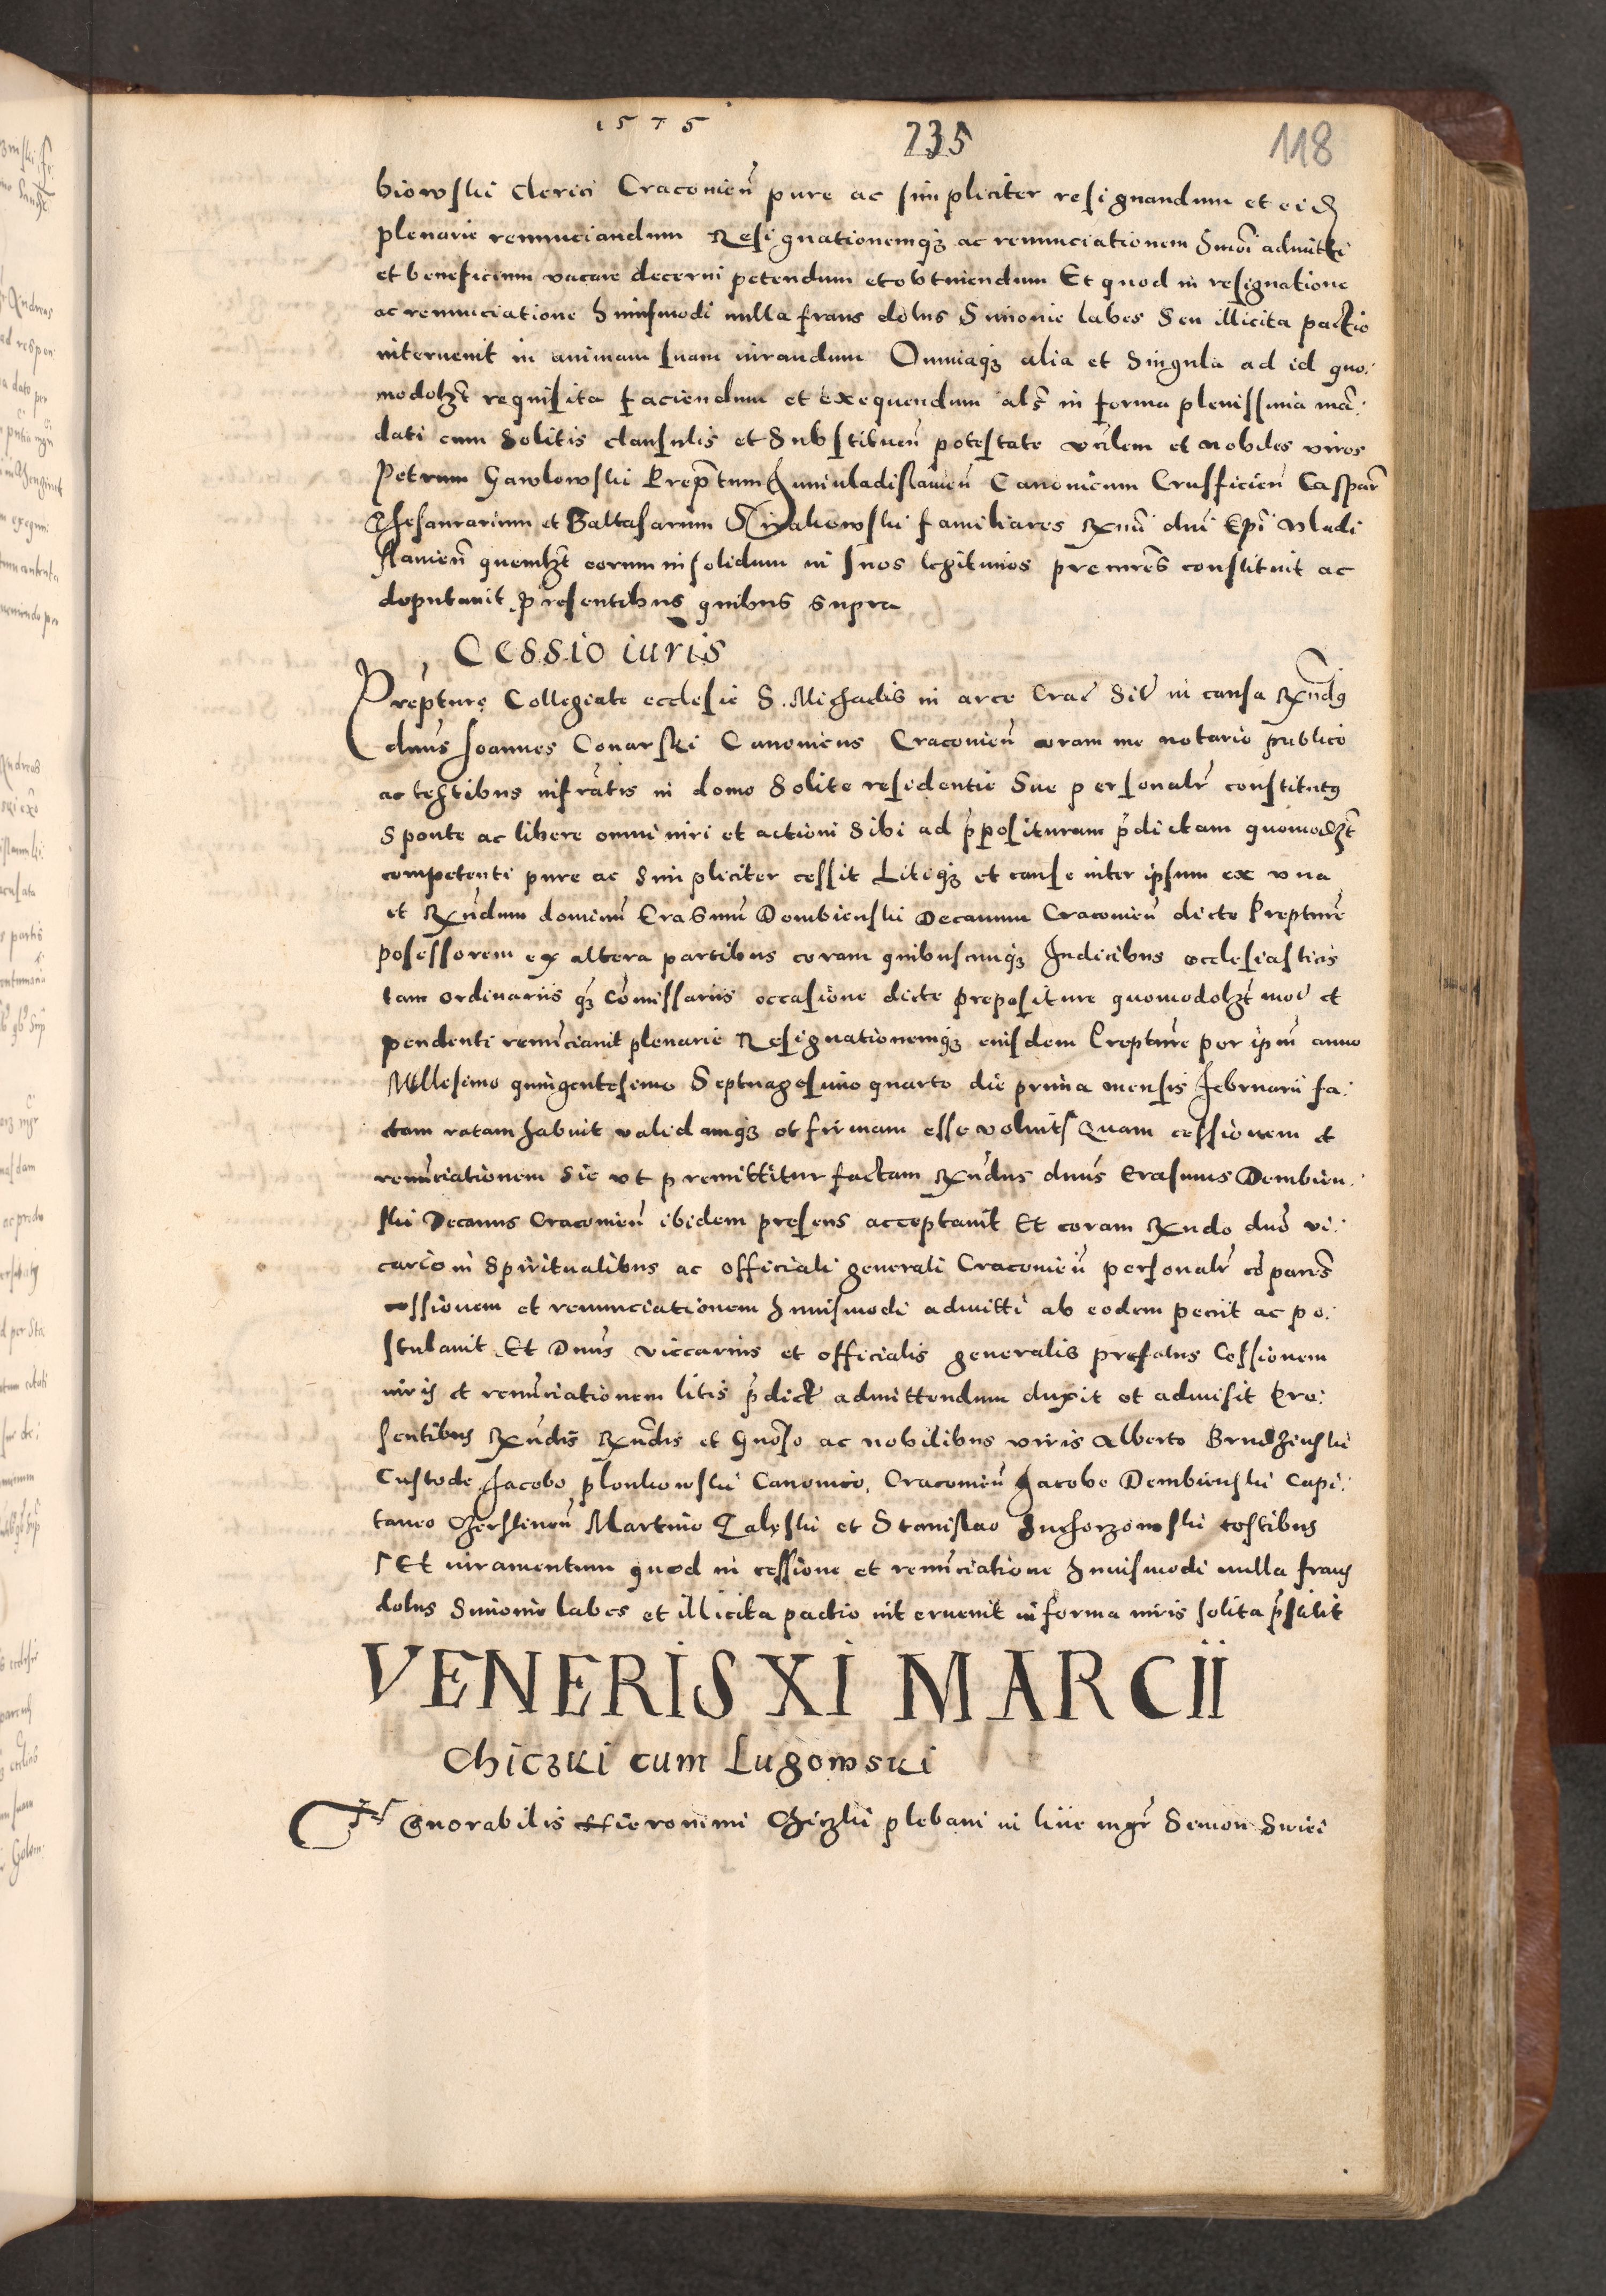 1575 235 118
biowski Clerici Cracovien̄ pure ac simpliciter resignandum et eid
plenarie renunciandum Resignationemqȝ ac renunciationem hmoi admitti
et beneficium vacare decerni petendum et obtinendum Et quod in resignatione
ac renunciatione huiusmodi nulla fraus dolus Simonie labes Seu illicita pactio
interuenit in animam suam iurandum Omniaqȝ alia et Singula ad id quo:
modolȝt requisita faciendum et exequendum als in forma plenissima mā:
dati cum Solitis clausulis et Substituen̄ potestate vrlem et nobiles viros
Petrum Gawlowski Preptum Juniuladislauien̄ Canonicum Crusficien̄ Caspar
Thesaurarium et Baltasarum familiares Rxmi dni Epi Vladi
slauien̄ quemlȝt eorum insolidum in suos legitimos procures constituit ac
deputauit presentibus quibus supra
Cessio iuris
Prepture Collegiate ecclesie S. Michaelis in arce Crac Sit in causa Rxndꝯ
dnus Joannes Conarski Canonicus Cracouien̄ coram me notario publico
ac testibus infratis in domo Solite residentie Sue personalr constitutꝯ
Sponte ac libere omni iuri et actioni Sibi ad pposituram pdictam quomodlȝt
competenti pure ac Simpliciter cessit Litiqȝ et cause inter ipsum ex vna
et Rxndum dominū Erasmū Dembienski Decanum Cracouien̄ dicte Prepture
posessorem ex altera partibus coram quibuscunqȝ Judicibus ecclesiasticis
tam ordinariis qȝ Comissariis occasione dicte prepositure quomodolȝt mot et
pendenti renūciauit plenarie Resignationemqȝ eiusdem Prepture per ipm̄ anno
Millesimo quingentesimo Septuagesimo quarto die prima mensis Februarii fa:
ctam ratam habuit validamqȝ et firmam esse voluit Quam cessionem et
renūciationem Sic vt premittitur factam Rxndus dnus Erasmus Dembien:
ski Decanus Cracouien̄ ibidem presens acceptauit Et coram Rxndo dno vi:
cario in Spiritualibus ac officiali generali Cracouien̄ personalr cōparēs
cessionem et renunciationem huiusmodi admitti ab eodem petiit ac po:
stulauit Et Dnus viccarius et officialis generalis prefatus Cessionem
iuris et renūciationem litis pdict admittendum duxit et admisit Pre:
sentibus Rxndis Rxndis et Gnoso ac nobilibus viris Alberto Brudzenski
Custode Jacobo plonkowski Canonico, Cracouien̄ Jacobo Dembienski Capi:
taneo Cherslinen̄ Martino Zaleski et Stanislao Suchorzowski testibus
Et iuramentum quod in cessione et renūciatione huiusmodi nulla fraus
dolus Simonie labes et illicita pactio interuenit in forma iuris solita pstitit
VENERIS XI MARCII
Chiczki cum Lugowski
Honorabilis Hieronimi Chiczki plebani in line mgr Semon